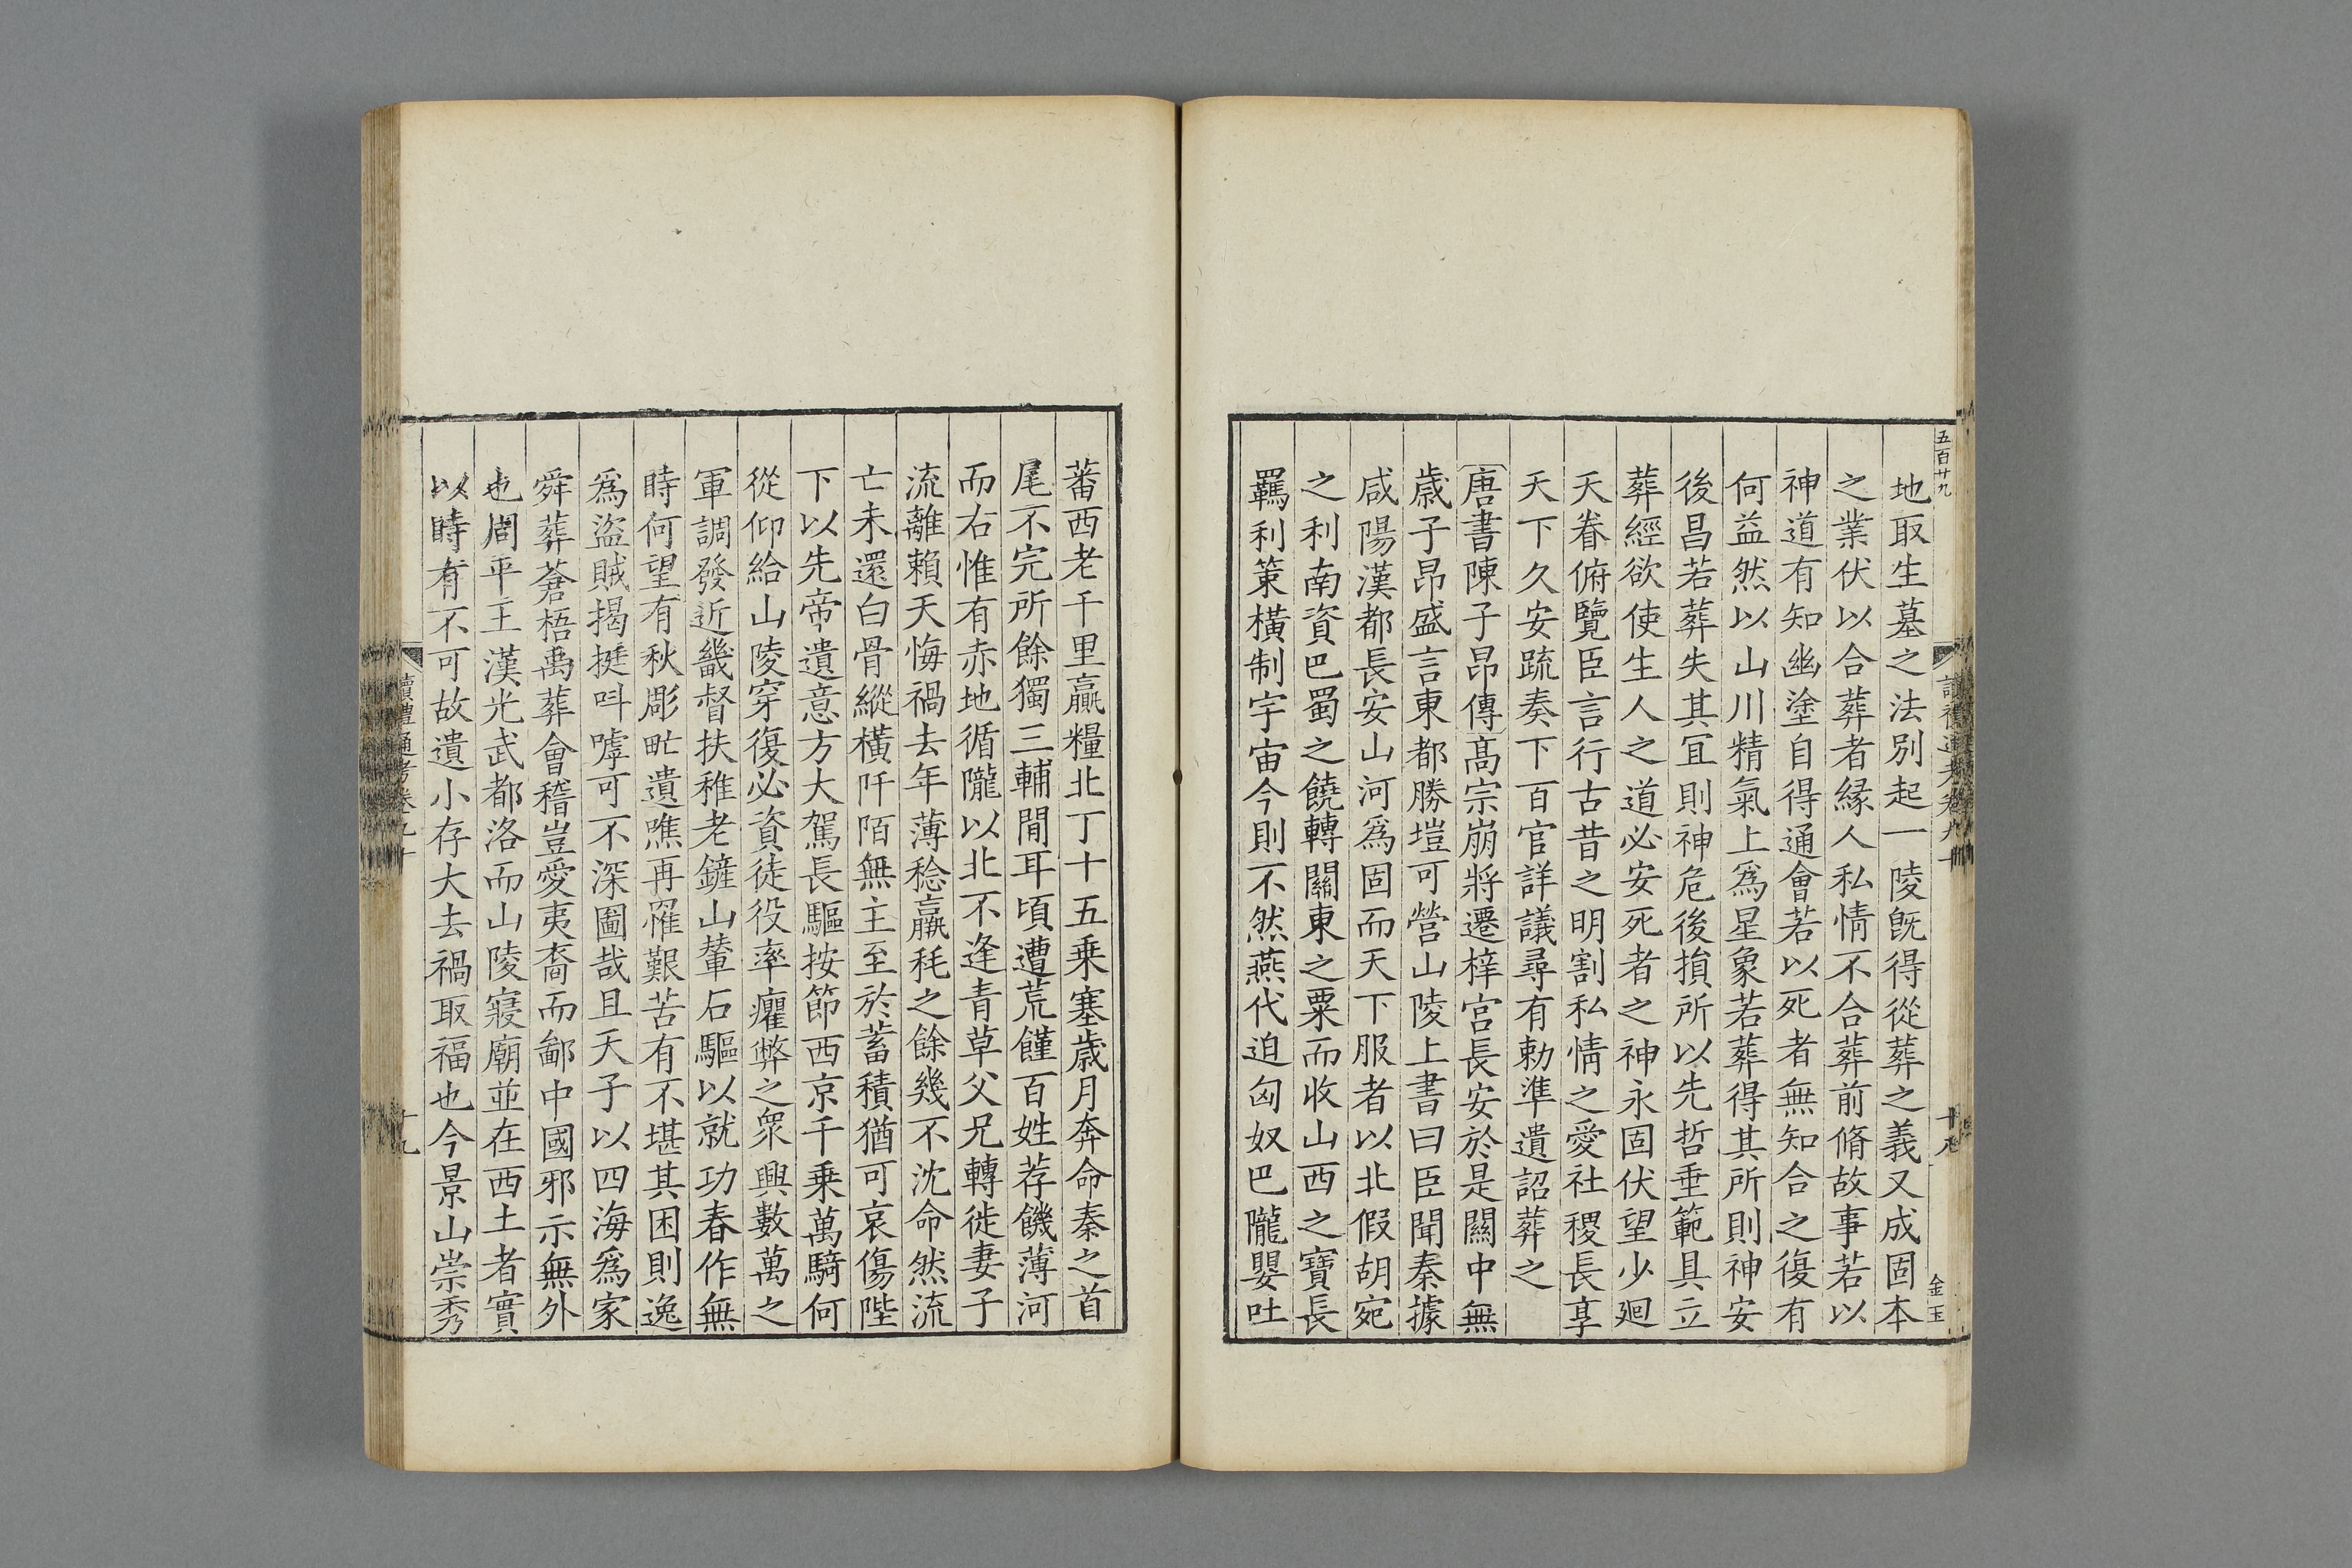 五百廿九
讀禮通考卷九十
十八
金玉
地取生墓之法別起一陵旣得從葬之義又成固本
之業伏以合葬者緣人私情不合葬前脩故事若以
神道有知幽塗自得通會若以死者無知合之復有
何益然以山川精氣上爲星象若葬得其所則神安
後昌若葬失其宜則神危後損所以先哲垂範具立
葬經欲使生人之道必安死者之神永固伏望少廻
天眷俯覽臣言行古昔之明割私情之愛社稷長享
天下久安疏奏下百官詳議尋有勅準遺詔葬之
唐書陳子昂傳高宗崩將遷梓宮長安於是關中無
歲子昂盛言東都勝塏可營山陵上書曰臣聞秦據
咸陽漢都長安山河爲固而天下服者以北假胡宛
之利南資巴蜀之饒轉關東之粟而收山西之寶長
羈利策橫制宇宙今則不然燕代迫匈奴巴隴嬰吐
蕃西老千里贏糧北丁十五乗塞歲月奔命秦之首
尾不完所餘獨三輔閒耳頃遭荒饉百姓荐饑薄河
而右惟有赤地循隴以北不逢青草父兄轉徙妻子
流離賴天悔禍去年薄稔羸秏之餘幾不沈命然流
亡未還白骨縱橫阡陌無主至於蓄積猶可哀傷陛
下以先帝遺意方大駕長驅按節西京千乗萬騎何
從仰給山陵穿復必資徒役率癯弊之衆興數萬之
軍調發近畿督扶稚老鏟山輦石驅以就功春作無
時何望有秋彫甿遺噍再罹艱苦有不堪其困則逸
爲盜賊揭挺叫嘑可不深圖哉且天子以四海爲家
舜葬蒼梧禹葬會稽豈愛夷裔而鄙中國邪示無外
也周平王漢光武都洛而山陵寢廟並在西土者實
以時有不可故遺小存大去禍取福也今景山崇秀
讀禮通考卷九十
十九